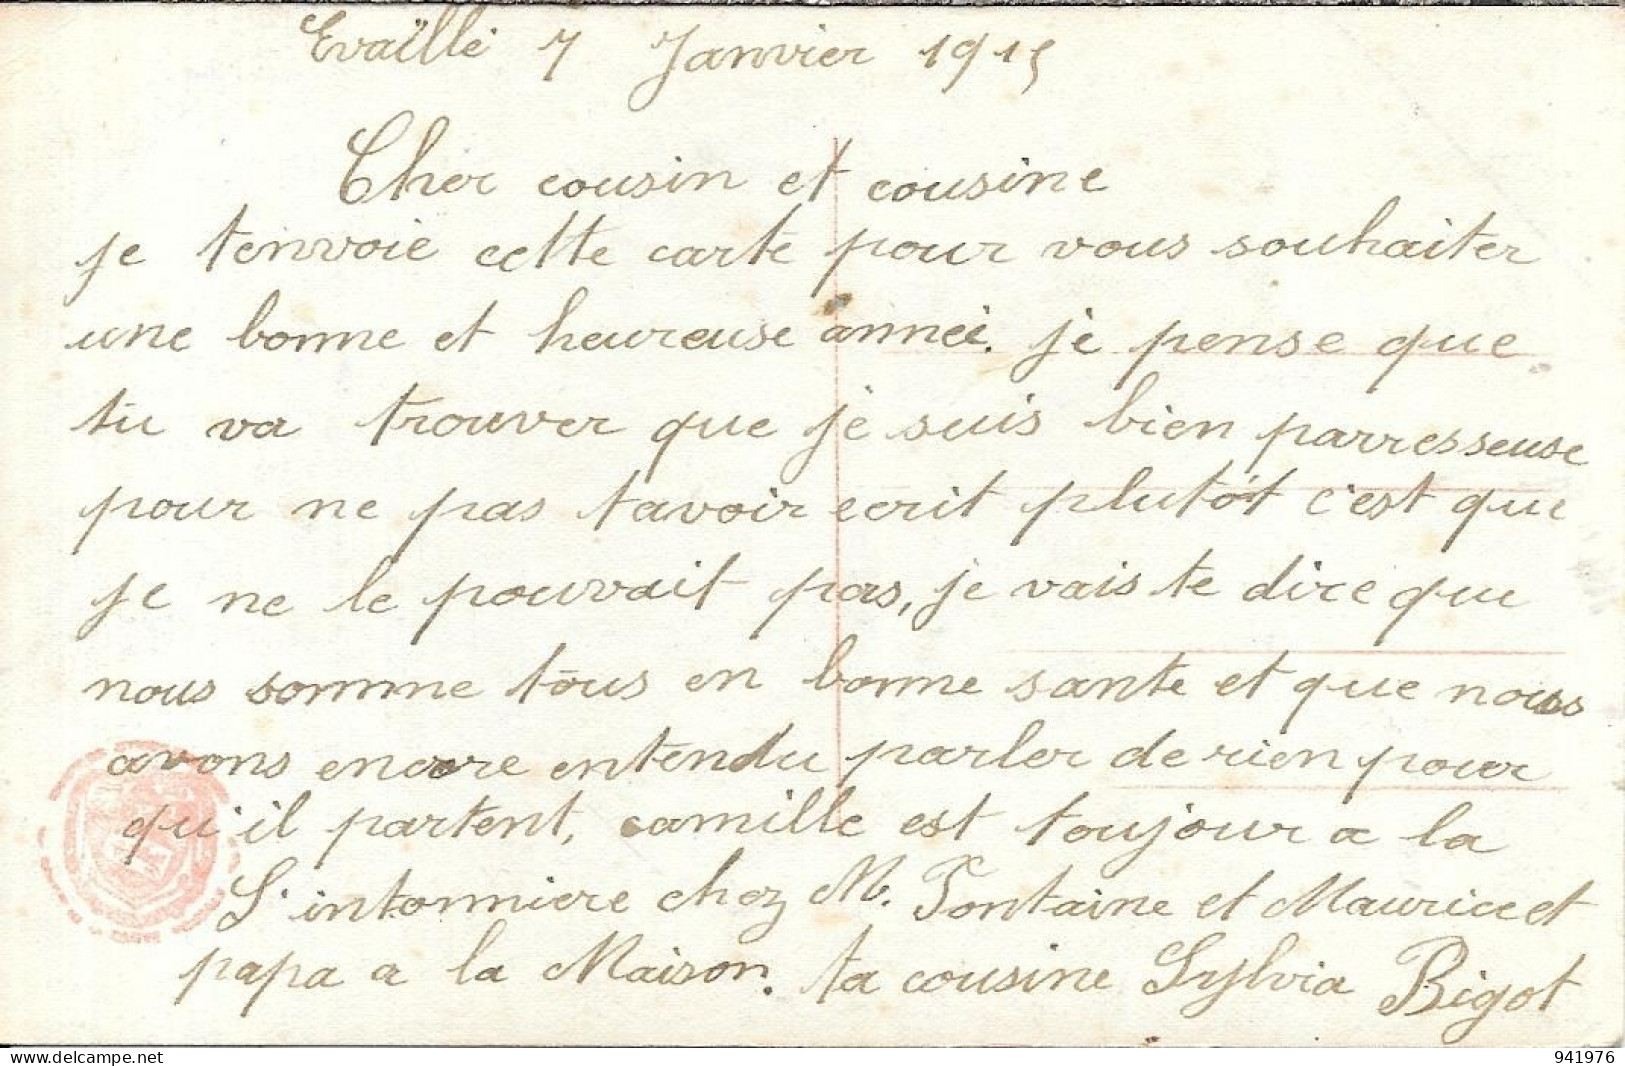 Evaillé 7 Janvier 1915
Cher cousin et cousine
je tenvoie cette carte pour vous souhaiter
une bonne et heureuse anneé. je pense que
tu va trouver que je suis bien parresseuse
pour ne pas tavoir ecrit plutôt c'est que
je ne le pouvait pas, je vais te dire que
nous somme tous en bonne sante et que nous
avons encore entendu parler de rien pour
qu'il partent, camille est toujour a la
S'intonniere chez M. Fontaine et Maurice et
papa a la Maison. ta cousine Sylvia Bigot
delcampe.net
941976